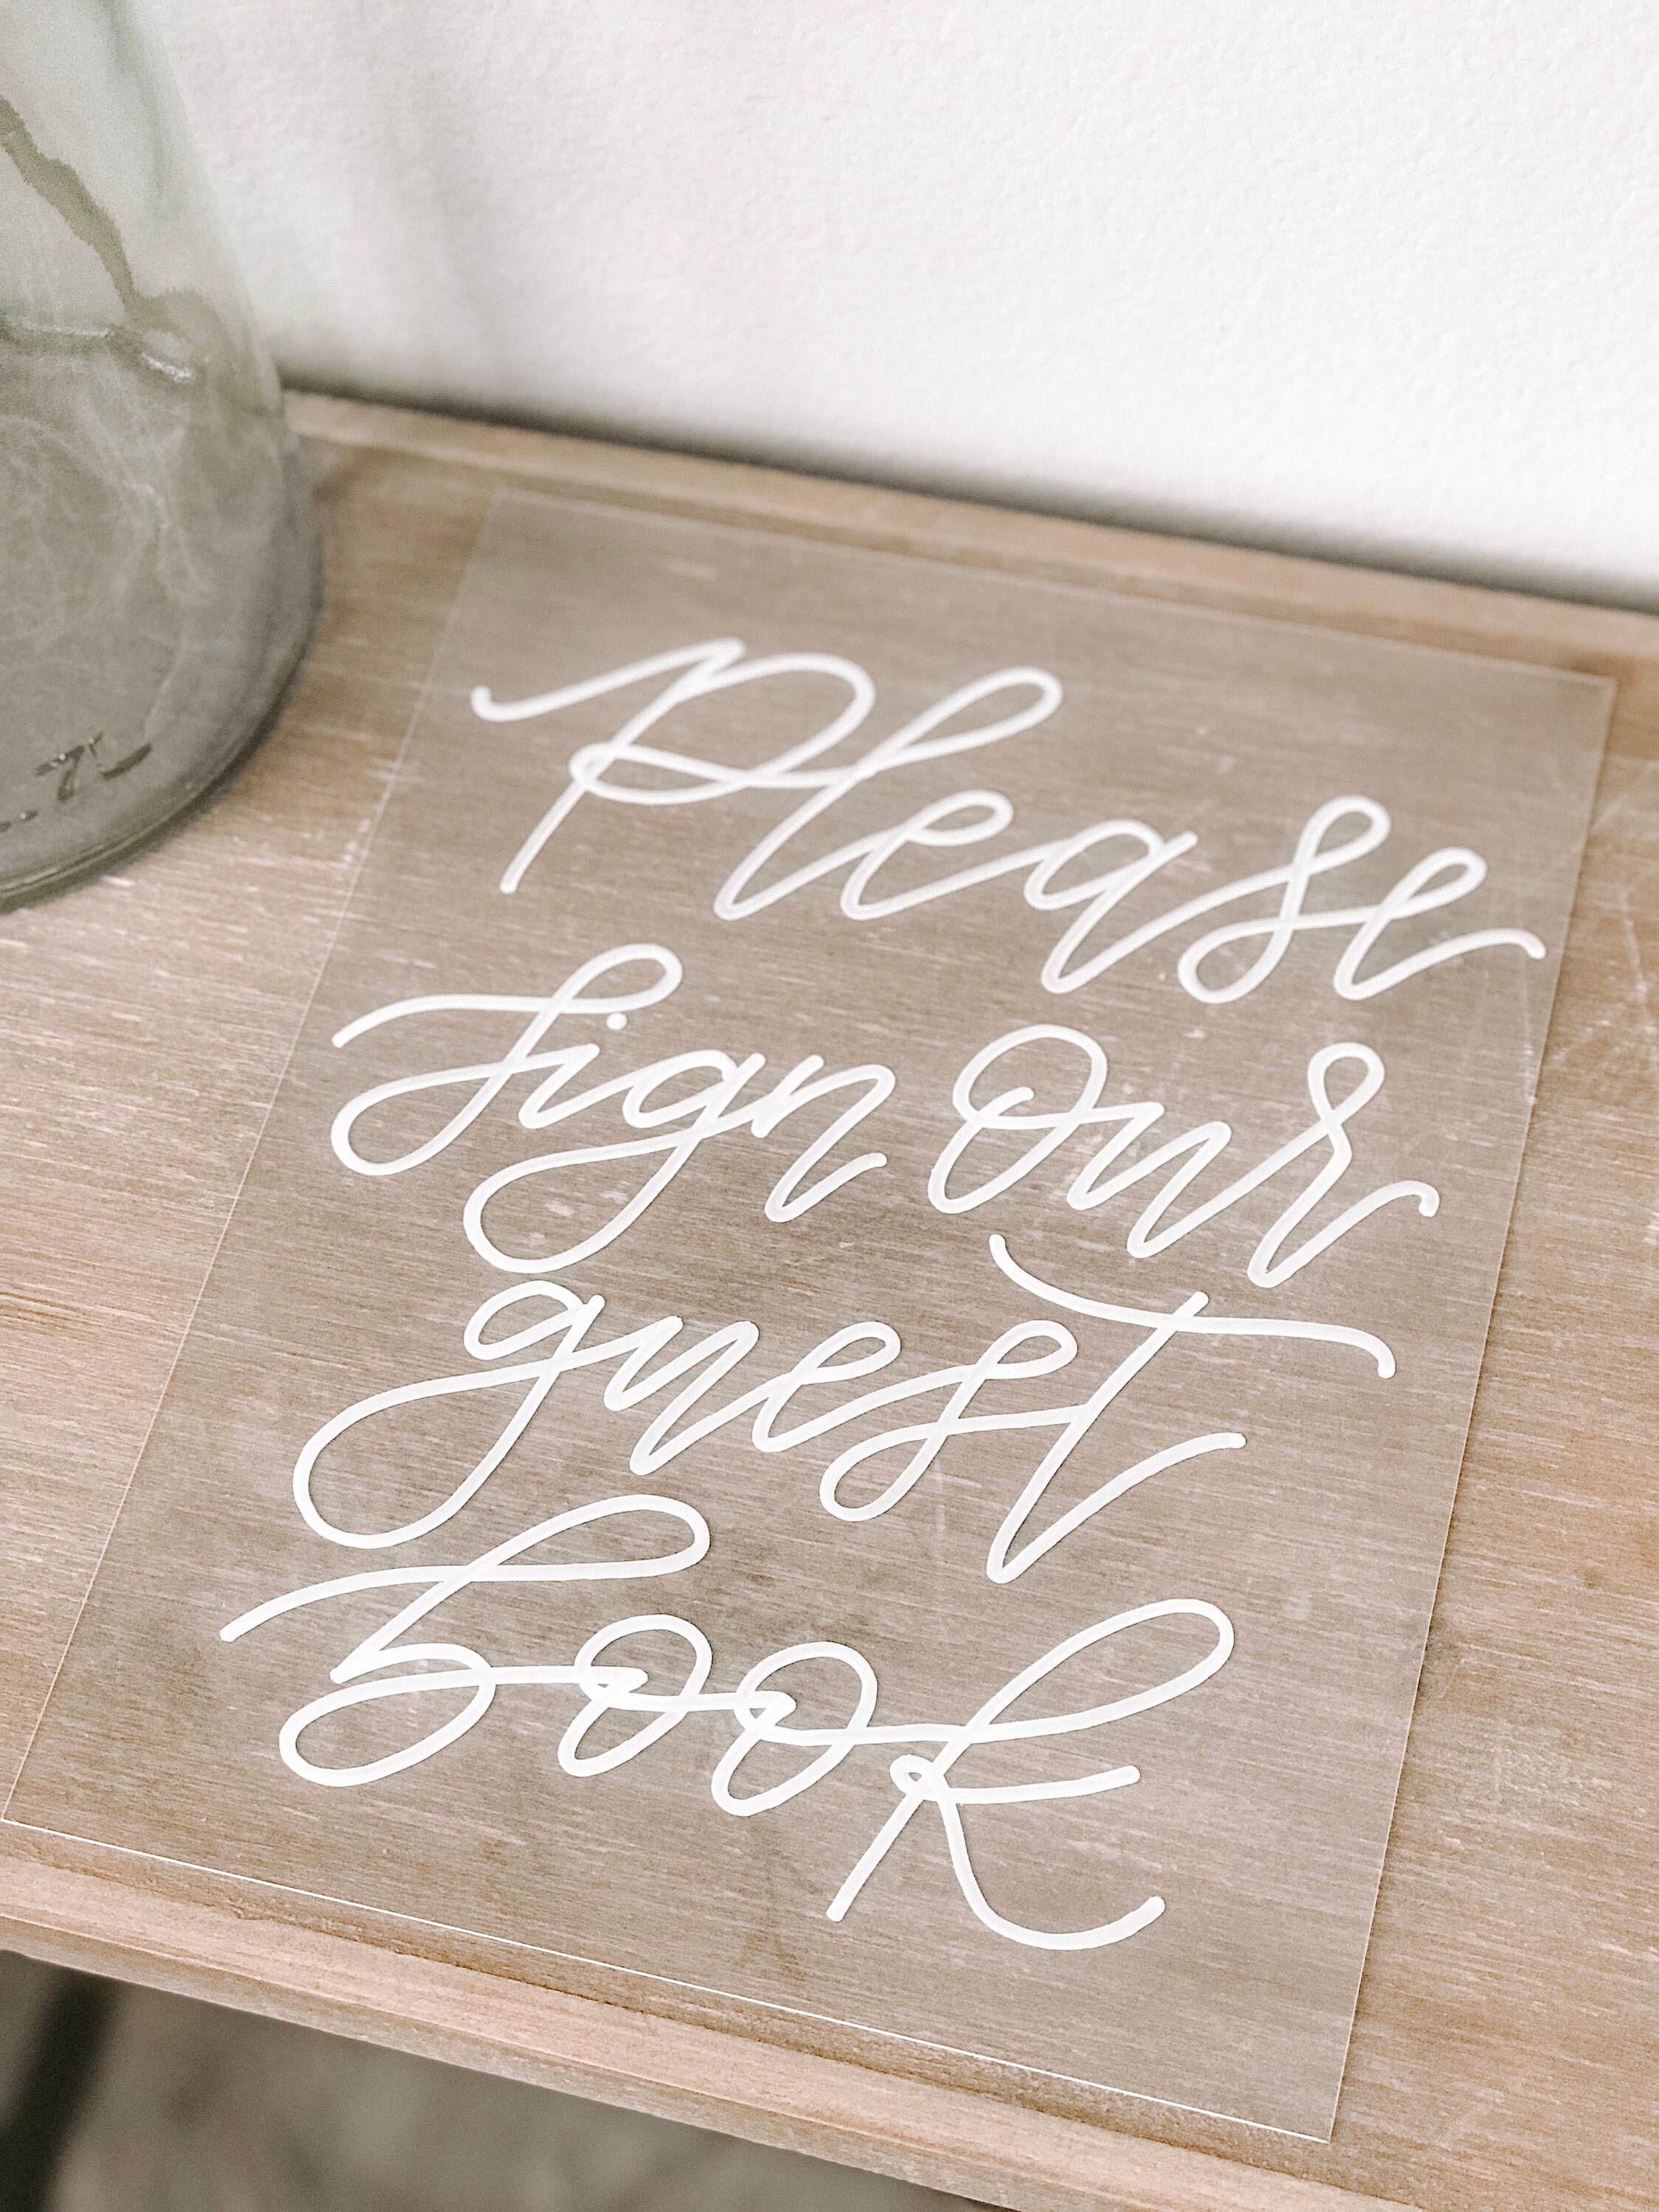 Please
sign Our
guest
book
7L